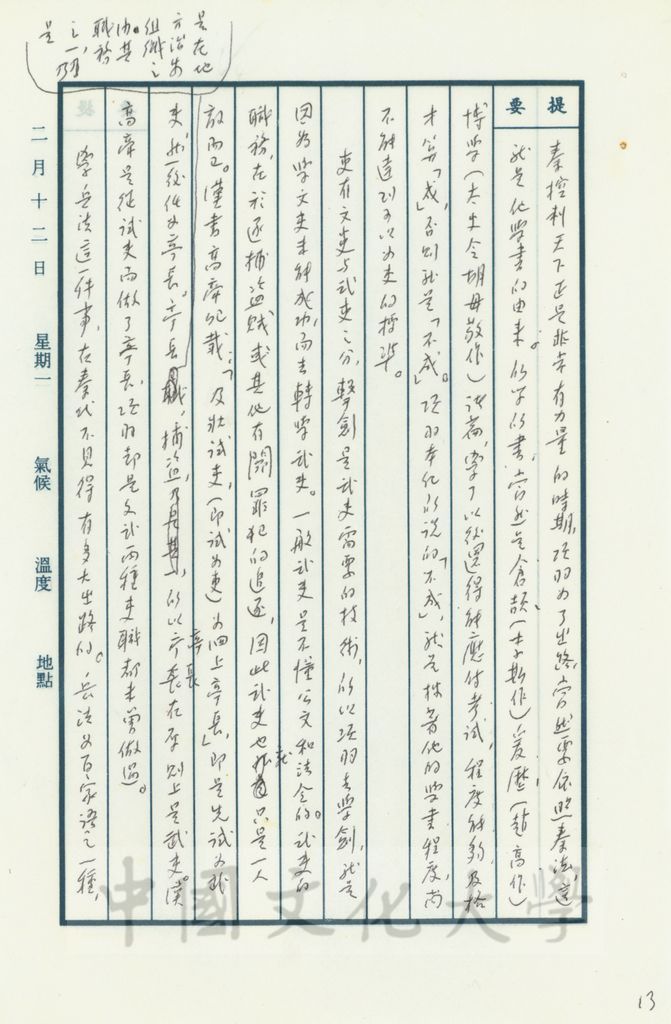 提要
秦控制天下正是非常有力量的時期,項羽為了出路,當然要依照秦法,這
就是他學書的由來。所學的書,當然是倉頡(李斯作)、爰歷(趙高作)、
博學(太史令胡母敬作)諸篇,學了以後還得能應付考試,程度能夠及格
才算「成」,否則就是「不成」。項羽本紀所說的「不成」,就是指著他的學書程度,尚
不能達到可以為吏的標準。
更有文吏與武吏之分,擊劍是武吏需要的技術,所以項羽去學劍,就是
因為學文吏未能成功,而去轉學武吏。一般武吏是不懂公文和法令的。武吏的
職務,在於逐捕盜賊或其他有關罪犯的追逐,因此武吏也就只是一人
敵而已。漢書高帝紀載:「及壯試吏,(即試為吏)為泗上亭長」,即是先試為武
吏,然後任為亭長。亭長職,捕盜,乃是其一,所以亭長在原則上是武吏。漢
高帝是從試吏而做了亭長,項羽卻是文武兩種吏職都未曾做過。
學兵法這一件事,在秦代不見得有多大出路的。兵法為百家語之一種,
是在地
方治安
組織之
內。其
職務
之一,乃
是
亭長
二月十二日 星期一 氣候 溫度 地點
中國文化大學
13